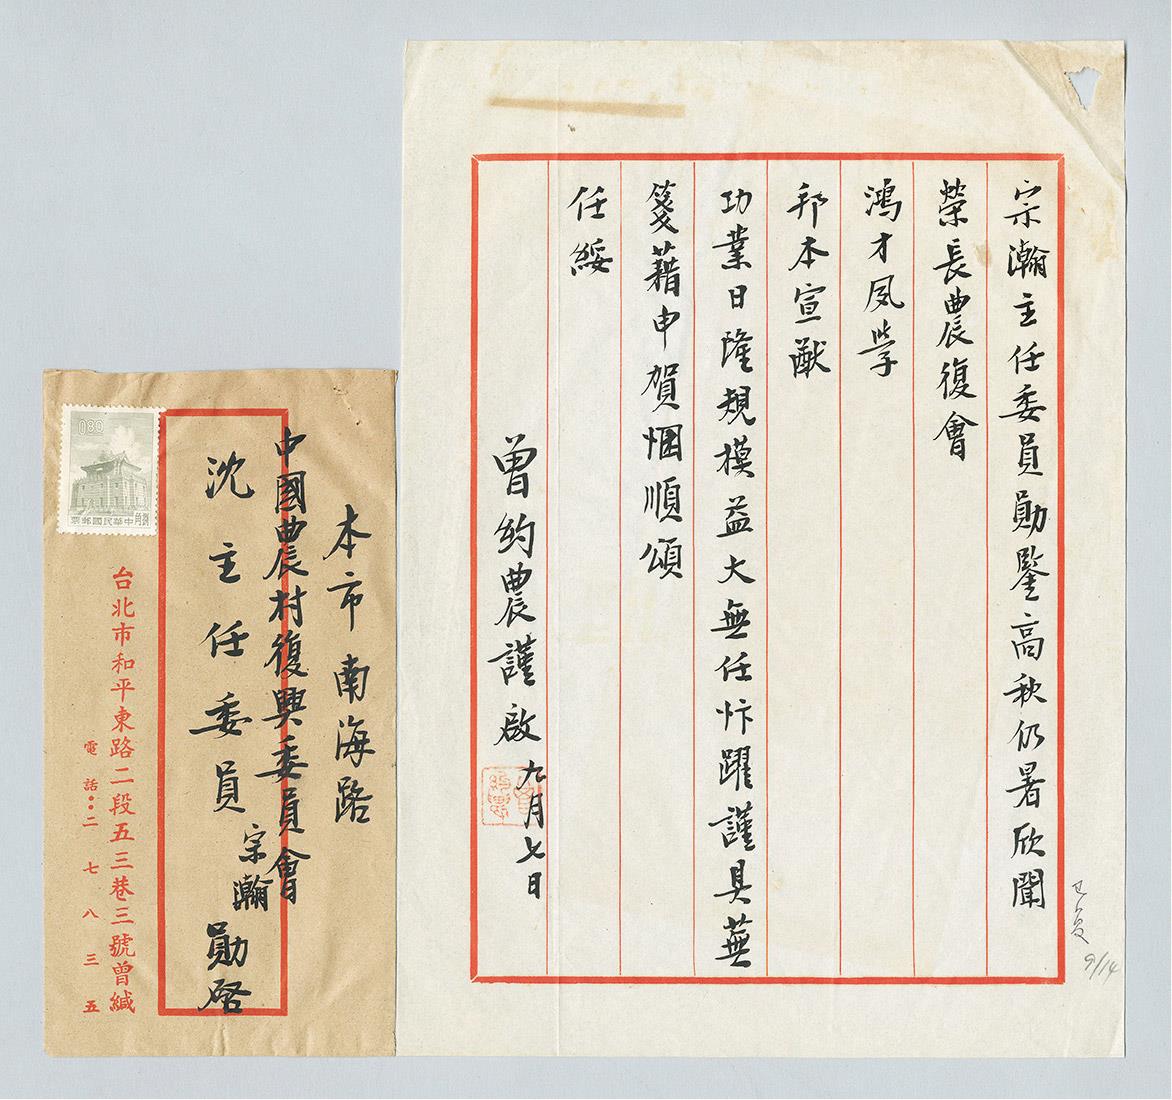 宗瀚主任委員勛鑒高秋仍暑欣聞
榮長農復會
鴻才夙學
邦本宣猷
功業日隆規模益大無任忭躍謹具蕪
箋藉申賀悃順頌
任綏
曾約農謹啟九月七日
已復
9/14
本市南海路
中國農村復興委員會
沈主任委員宗瀚勛啓
台北市和平東路二段五三巷三號曾緘
電話：二七八三五
0.80
票郵國民華中
角捌